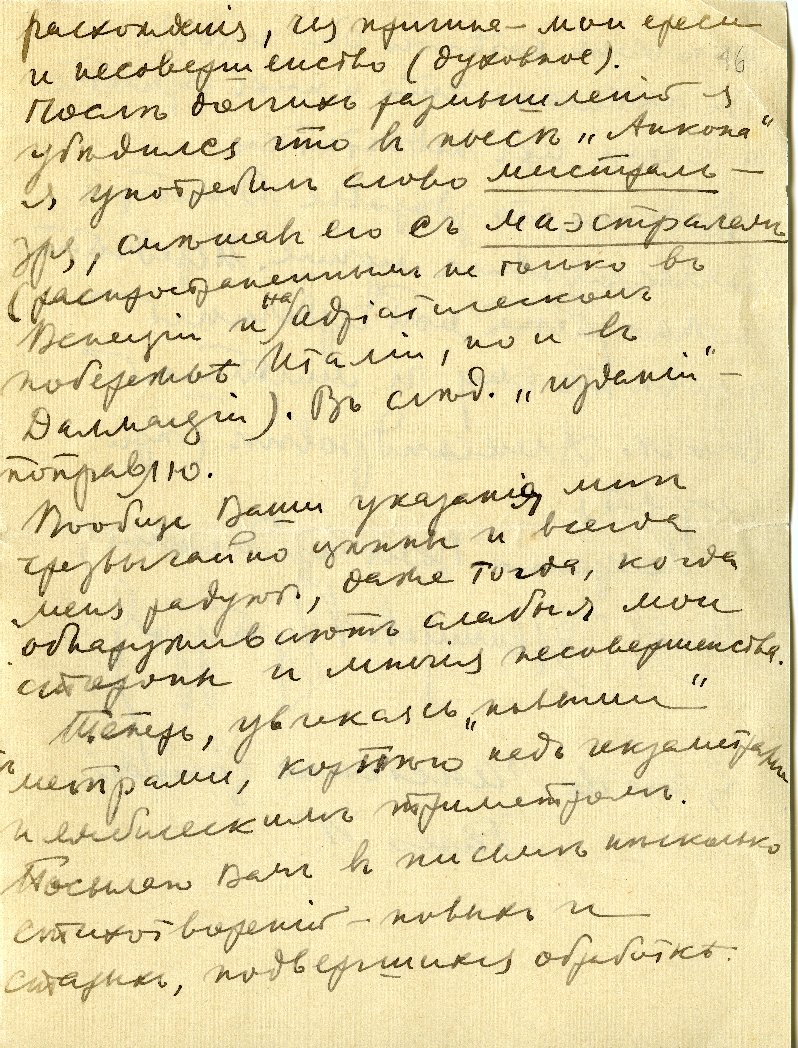 расхожденія, их причина — мои ереси
и несовершенство (духовное).
46
Послѣ долгихъ размышленій я
убѣдился что в пьесѣ „Анкона“
я употребилъ слово мистраль —
зря, смѣшав его съ маэстралемъ
(распространеннымъ не только въ
Венеціи и на Адріатическомъ
побережьѣ Италіи, но и въ
Далмаціи). Въ слѣд. „изданіи“ —
поправлю.
Вообще Ваши указанія мнѣ
чрезвычайно цѣнны и всегда
меня радуютъ, даже тогда, когда
обнаруживаютъ слабыя мои
стороны и многія несовершенства.
Теперь, увлекаясь „новыми“
метрами, корплю надъ гекзаметрами
и ямбическимъ триметромъ.
Посылаю Вамъ в письмѣ нѣсколько
стихотвореній — новыхъ и
старыхъ, подвергшихся обработкѣ.